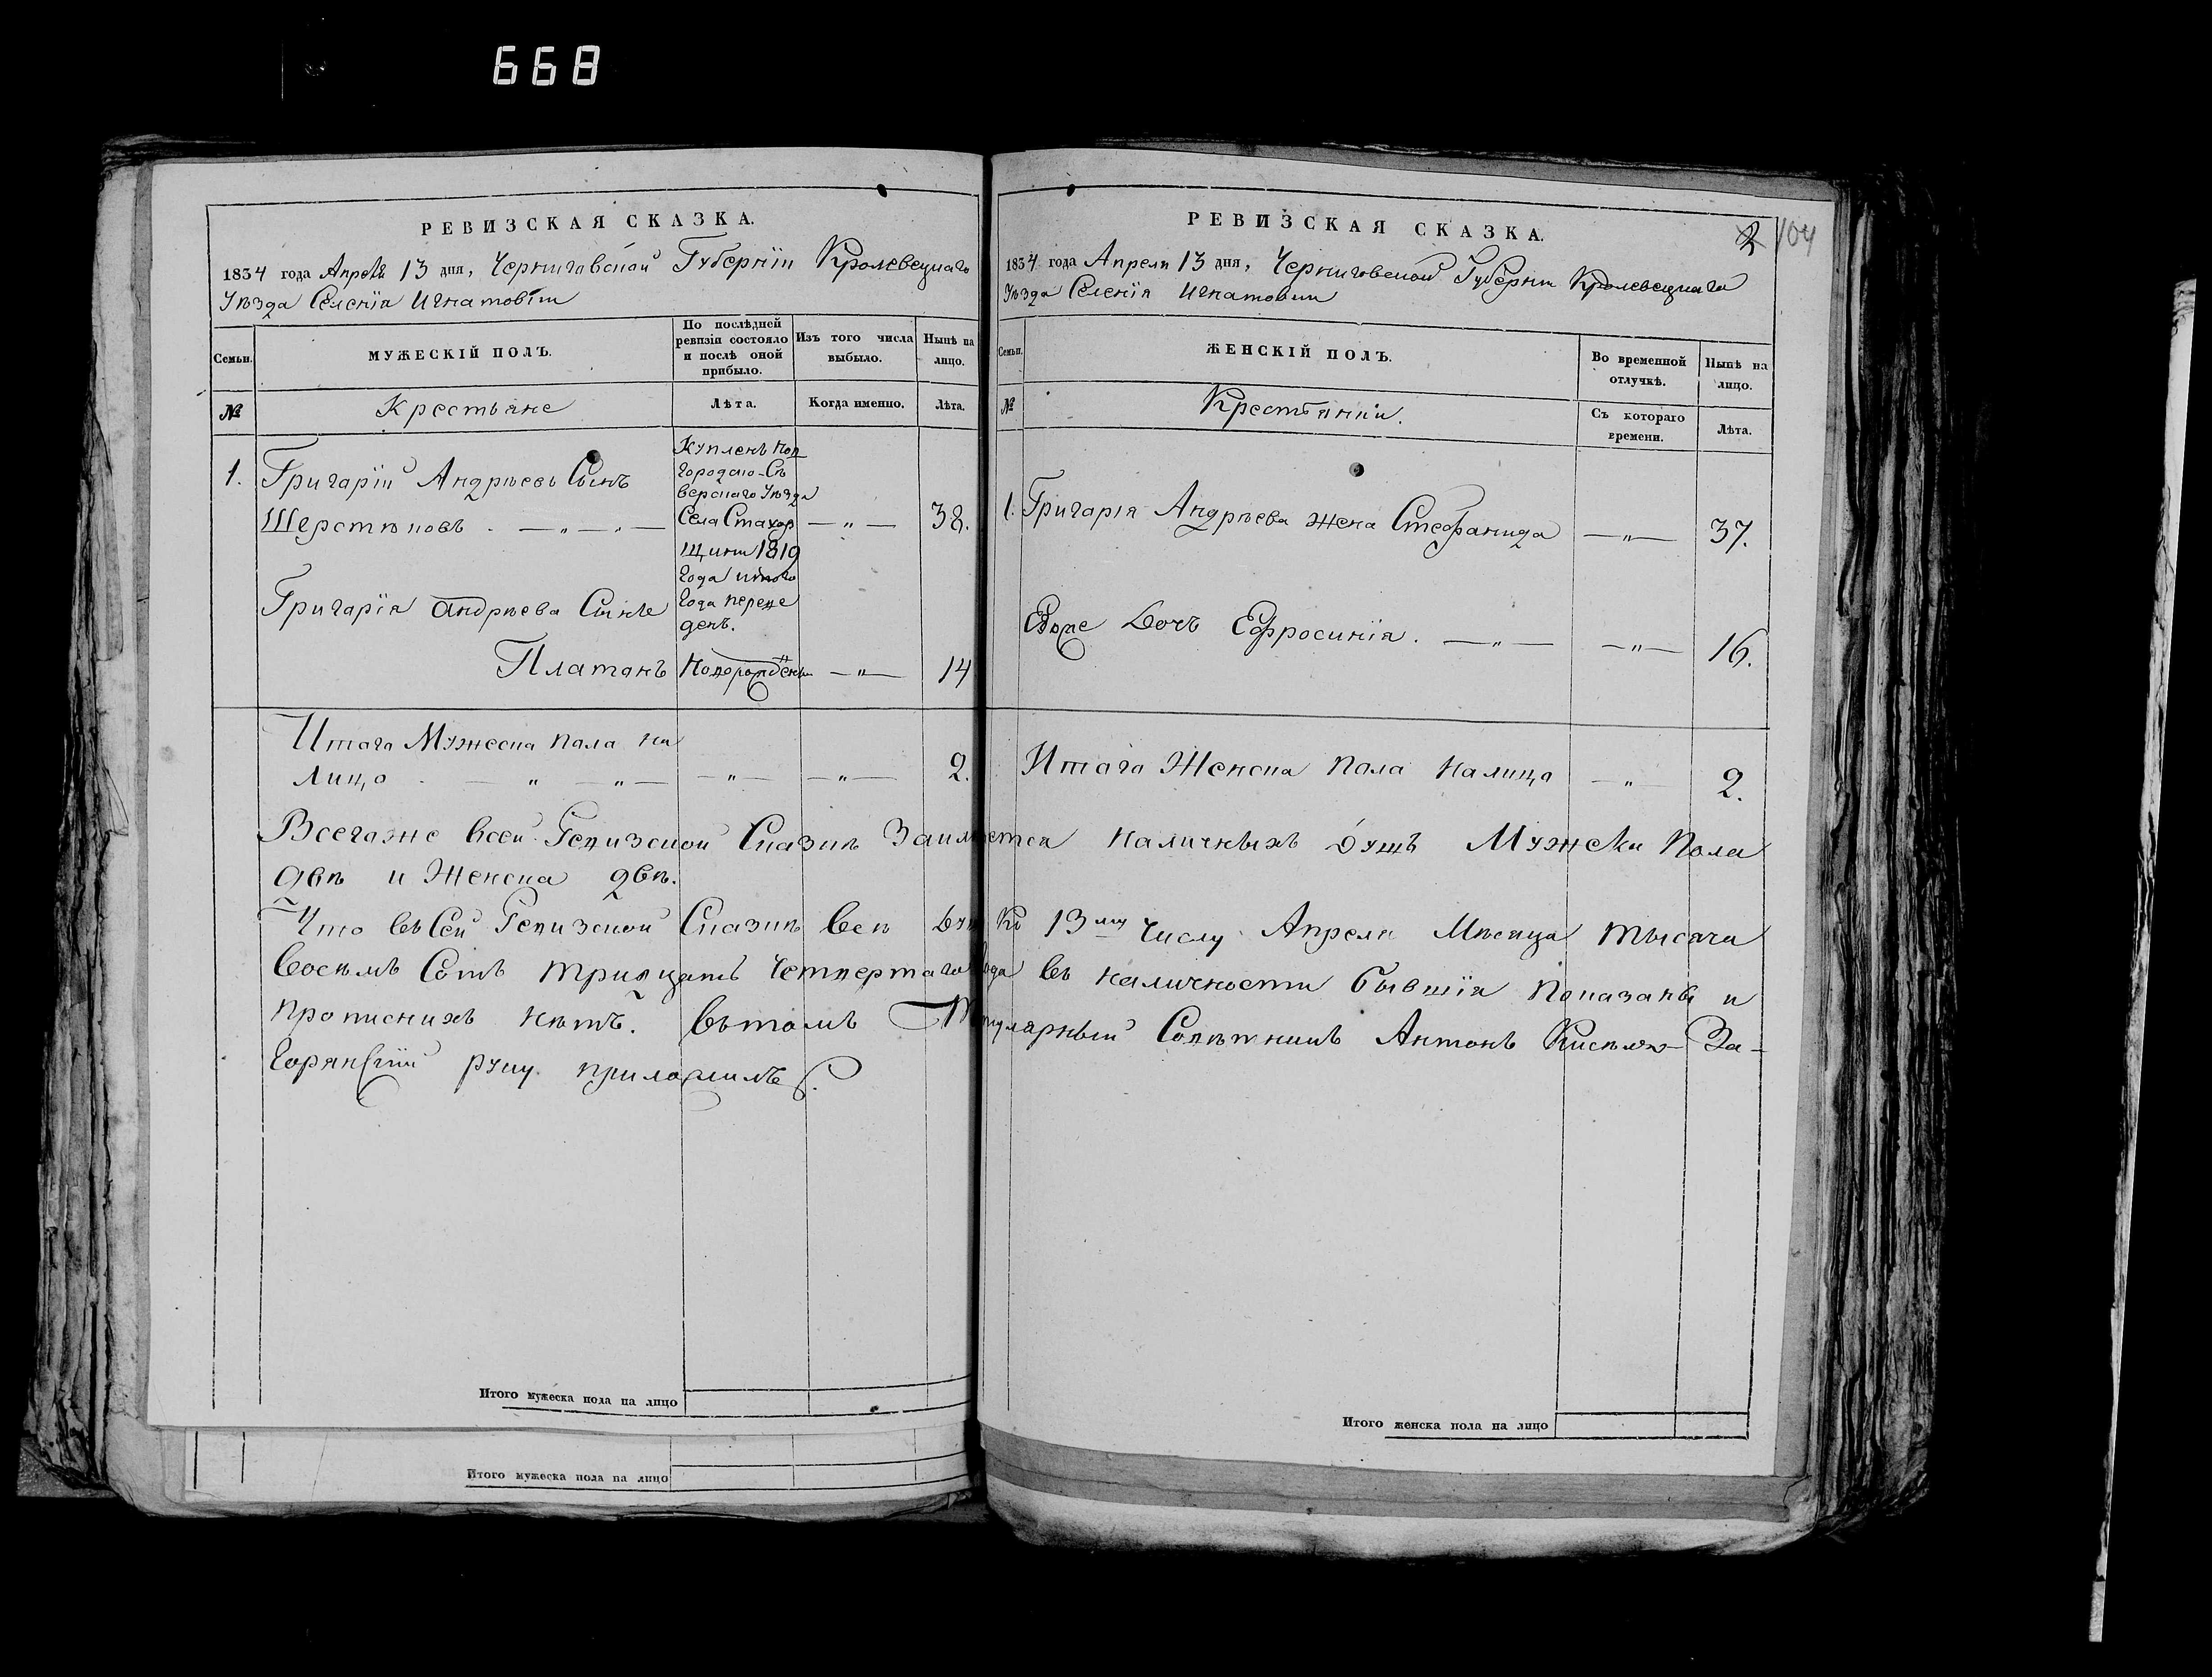 668
РЕВИЗСКАЯ СКАЗКА.
1834 года Апреля 13 дня, Черниговской Губернїи Кролевецкаго
Уѣзда Селенїя Игнатовки
Семьи.
МУЖЕСКІЙ ПОЛЪ.
По послѣдней ревизіи состояло и послѣ оной прибыло.
Изъ того числа выбыло.
Нынѣ на лицо.
№
Крестьяне
Лѣта.
Когда именно.
Лѣта.
1.
Григарїй Андрѣевъ Сынъ
Шерстюковъ
Купленъ Нов
городско-Сѣ
верскаго Уѣзда
Села Стахор
щини 1819
Года и того
Года переве
денъ.
— " —
38.
Григарїя Андрѣева Сынъ
Платонъ
Новорожденъ
— " —
14
Итаго Мужеска пала на
Лицо — " — " — — " — — " — 2.
РЕВИЗСКАЯ СКАЗКА.
2 104
1834 года Апреля 13 дня, Черниговской Губернїи Кролевецкаго
Уѣзда Селенїя Игнатовки
Семьи.
ЖЕНСКІЙ ПОЛЪ.
Во временной отлучкѣ.
Нынѣ на лицо.
№
Крестьянки.
Съ котораго времени.
Лѣта.
1. Григарїя Андрѣева жена Стефанида — " — 37.
Евоже Дочъ Ефросинїя. — " — — " — 16.
Итаго Женска пала налицо — " — 2.
Всегоже Всей Ревизской Сказкѣ Заимется наличныхъ душъ Мужска Пола
двѣ и Женска двѣ.
Что въ Сей Ревизской Сказкѣ всѣ Къ 13му Числу Апреля Мѣсяца тысяча
восемъ Сотъ тридцать Четвертаго Года въ наличности бывшїя показаны и
прописнихъ нѣтъ. Вътомъ Титулярный Совѣтникъ Антонъ За-
горянскїй руку приложилъ.
Итого мужеска пола на лицо
Итого женска пола на лицо
Итого мужеска пола на лицо